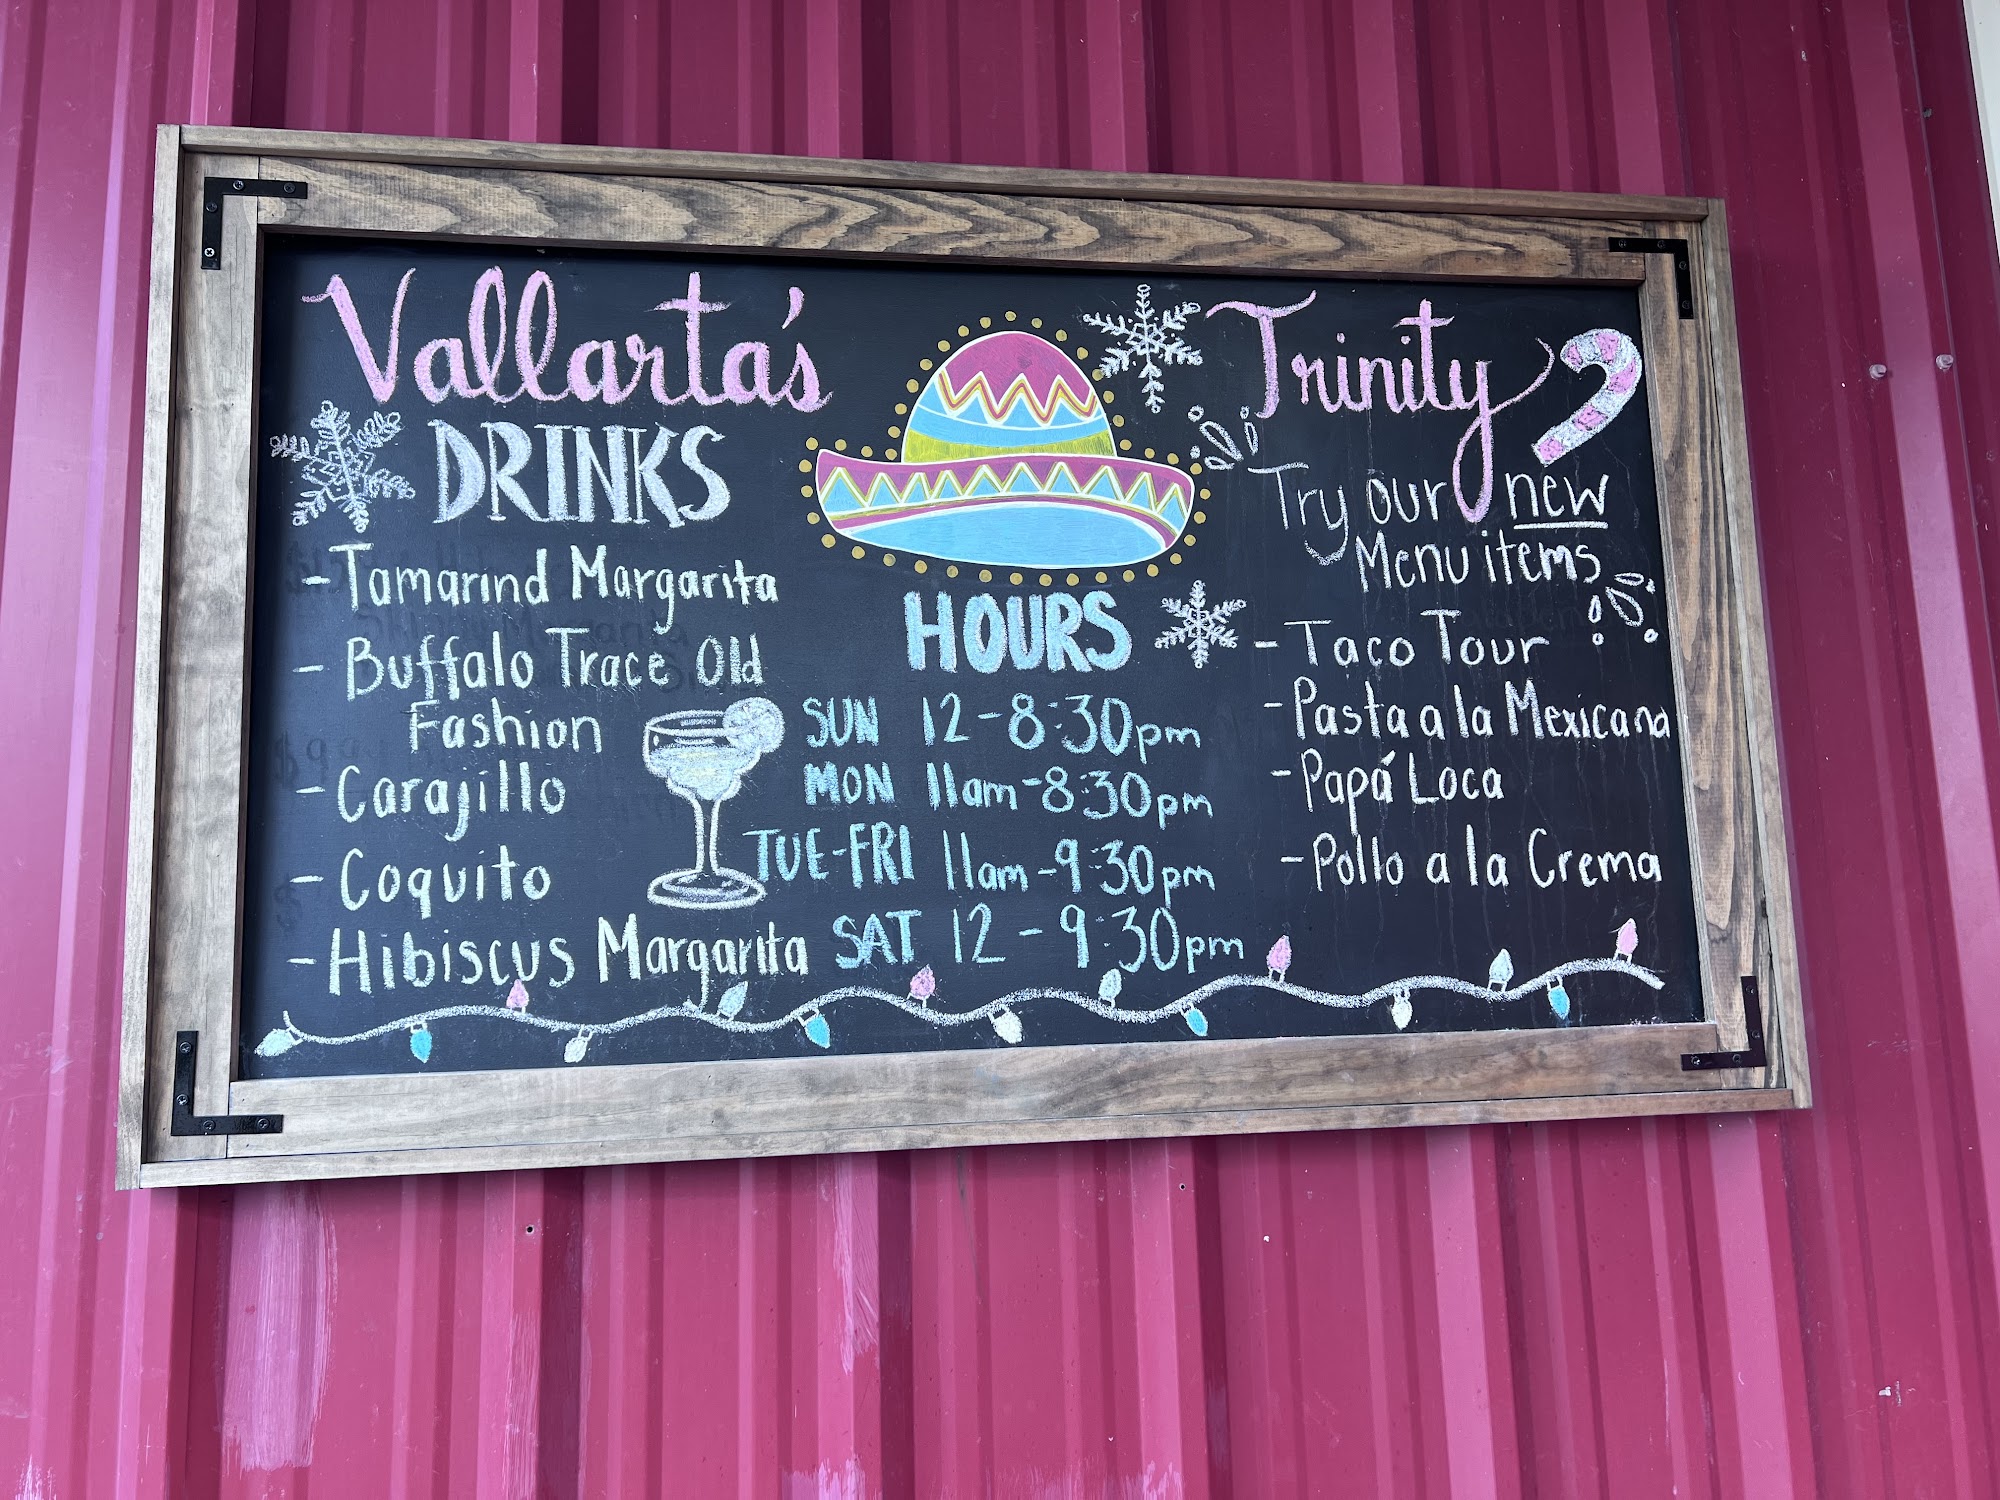 Vallarta's
DRINKS
- Tamarind Margarita
- Buffalo Trace Old
Fashion
- Carajillo
- Coquito
- Hibiscus Margarita
HOURS
SUN 12-8:30pm
MON 11am-8:30pm
TUE-FRI 11am-9:30pm
SAT 12-9:30pm
Trinity
Try our new
Menu items
- Taco Tour
- Pasta a la Mexicana
- Papá Loca
- Pollo a la Crema